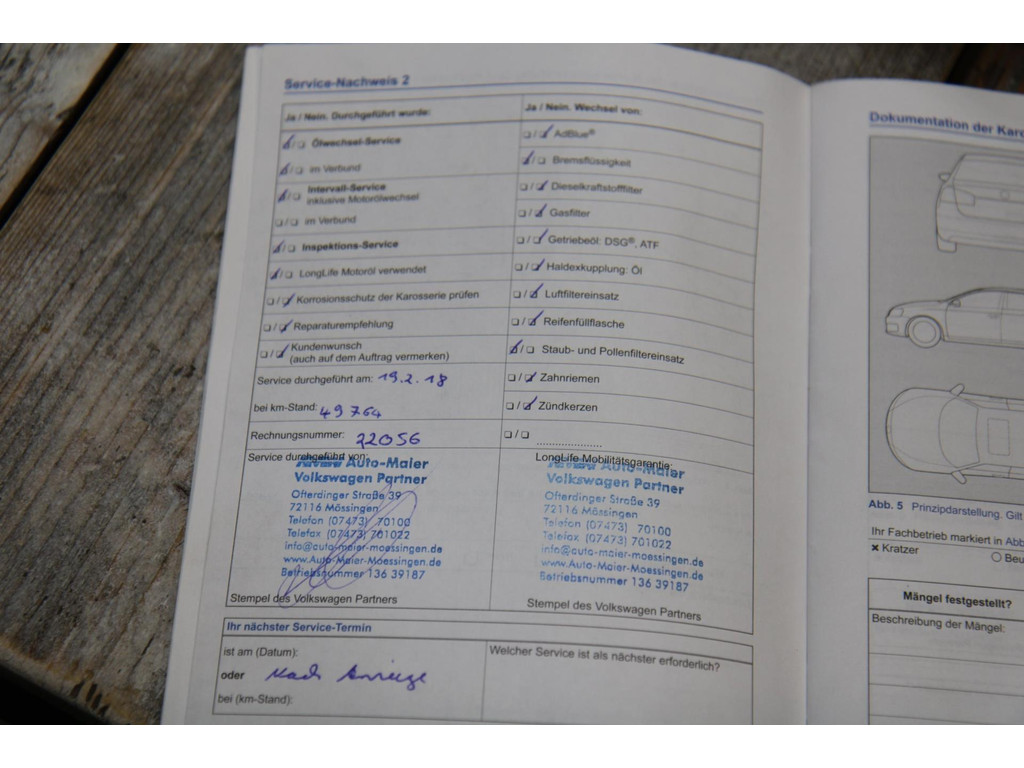 Service-Nachweis 2
Ja / Nein. Durchgeführt wurde:
Ölwechsel-Service
im Verbund
Intervall-Service
inklusive Motorölwechsel
im Verbund
Inspektions-Service
LongLife Motoröl verwendet
Korrosionsschutz der Karosserie prüfen
Reparaturempfehlung
Kundenwunsch
(auch auf dem Auftrag vermerken)
Service durchgeführt am: 19.2.18
bei km-Stand: 49764
Rechnungsnummer: 22056
Service durchgeführt von:
Auto-Maier
Volkswagen Partner
Ofterdinger Straße 39
72116 Mössingen
Telefon (07473) 70100
Telefax (07473) 701022
info@auto-maier-moessingen.de
www.Auto-Maier-Moessingen.de
Betriebsnummer 136 39187
Stempel des Volkswagen Partners
Ja / Nein. Wechsel von:
AdBlue®
Bremsflüssigkeit
Dieselkraftstofffilter
Gasfilter
Getriebeöl: DSG®, ATF
Haldexkupplung: Öl
Luftfiltereinsatz
Reifenfüllflasche
Staub- und Pollenfiltereinsatz
Zahnriemen
Zündkerzen
LongLife Mobilitätsgarantie:
Auto-Maier
Volkswagen Partner
Ofterdinger Straße 39
72116 Mössingen
Telefon (07473) 70100
Telefax (07473) 701022
info@auto-maier-moessingen.de
www.Auto-Maier-Moessingen.de
Betriebsnummer 136 39187
Stempel des Volkswagen Partners
Ihr nächster Service-Termin
ist am (Datum):
oder Nach Anzeige
bei (km-Stand):
Welcher Service ist als nächster erforderlich?
Dokumentation der Karo
Abb. 5 Prinzipdarstellung. Gilt
Ihr Fachbetrieb markiert in Abb
× Kratzer
Beu
Mängel festgestellt?
Beschreibung der Mängel: